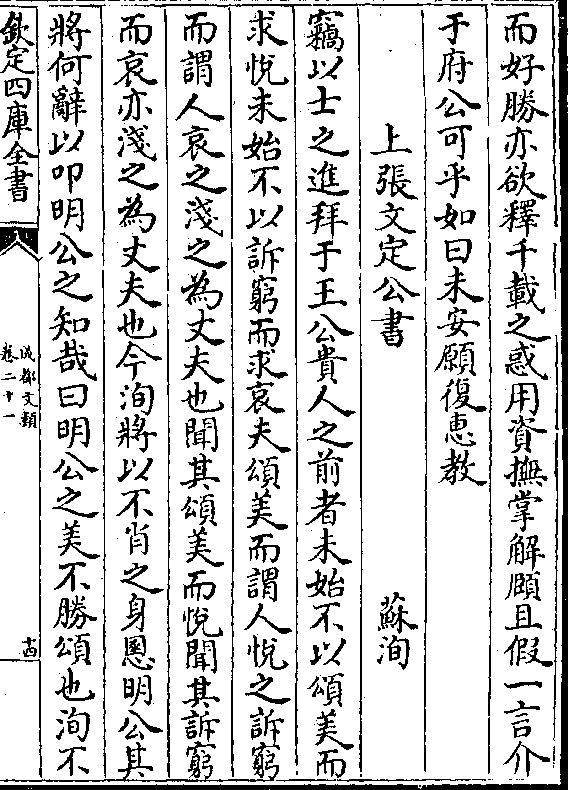 而好勝亦欲釋千載之惑用資撫掌解頤且假一言介
于府公可乎如曰未安願復惠教
上張文定公書 蘇洵
竊以士之進拜于王公貴人之前者未始不以頌美而
求悅未始不以訴窮而求哀夫頌美而謂人悅之訴窮
而謂人哀之淺之為丈夫也聞其頌美而悅聞其訴窮
而哀亦淺之為丈夫也今洵將以不肖之身慁明公其
將何辭以叩明公之知哉曰明公之美不勝頌也洵不
欽定四庫全書
成都文類
卷二十一
十四